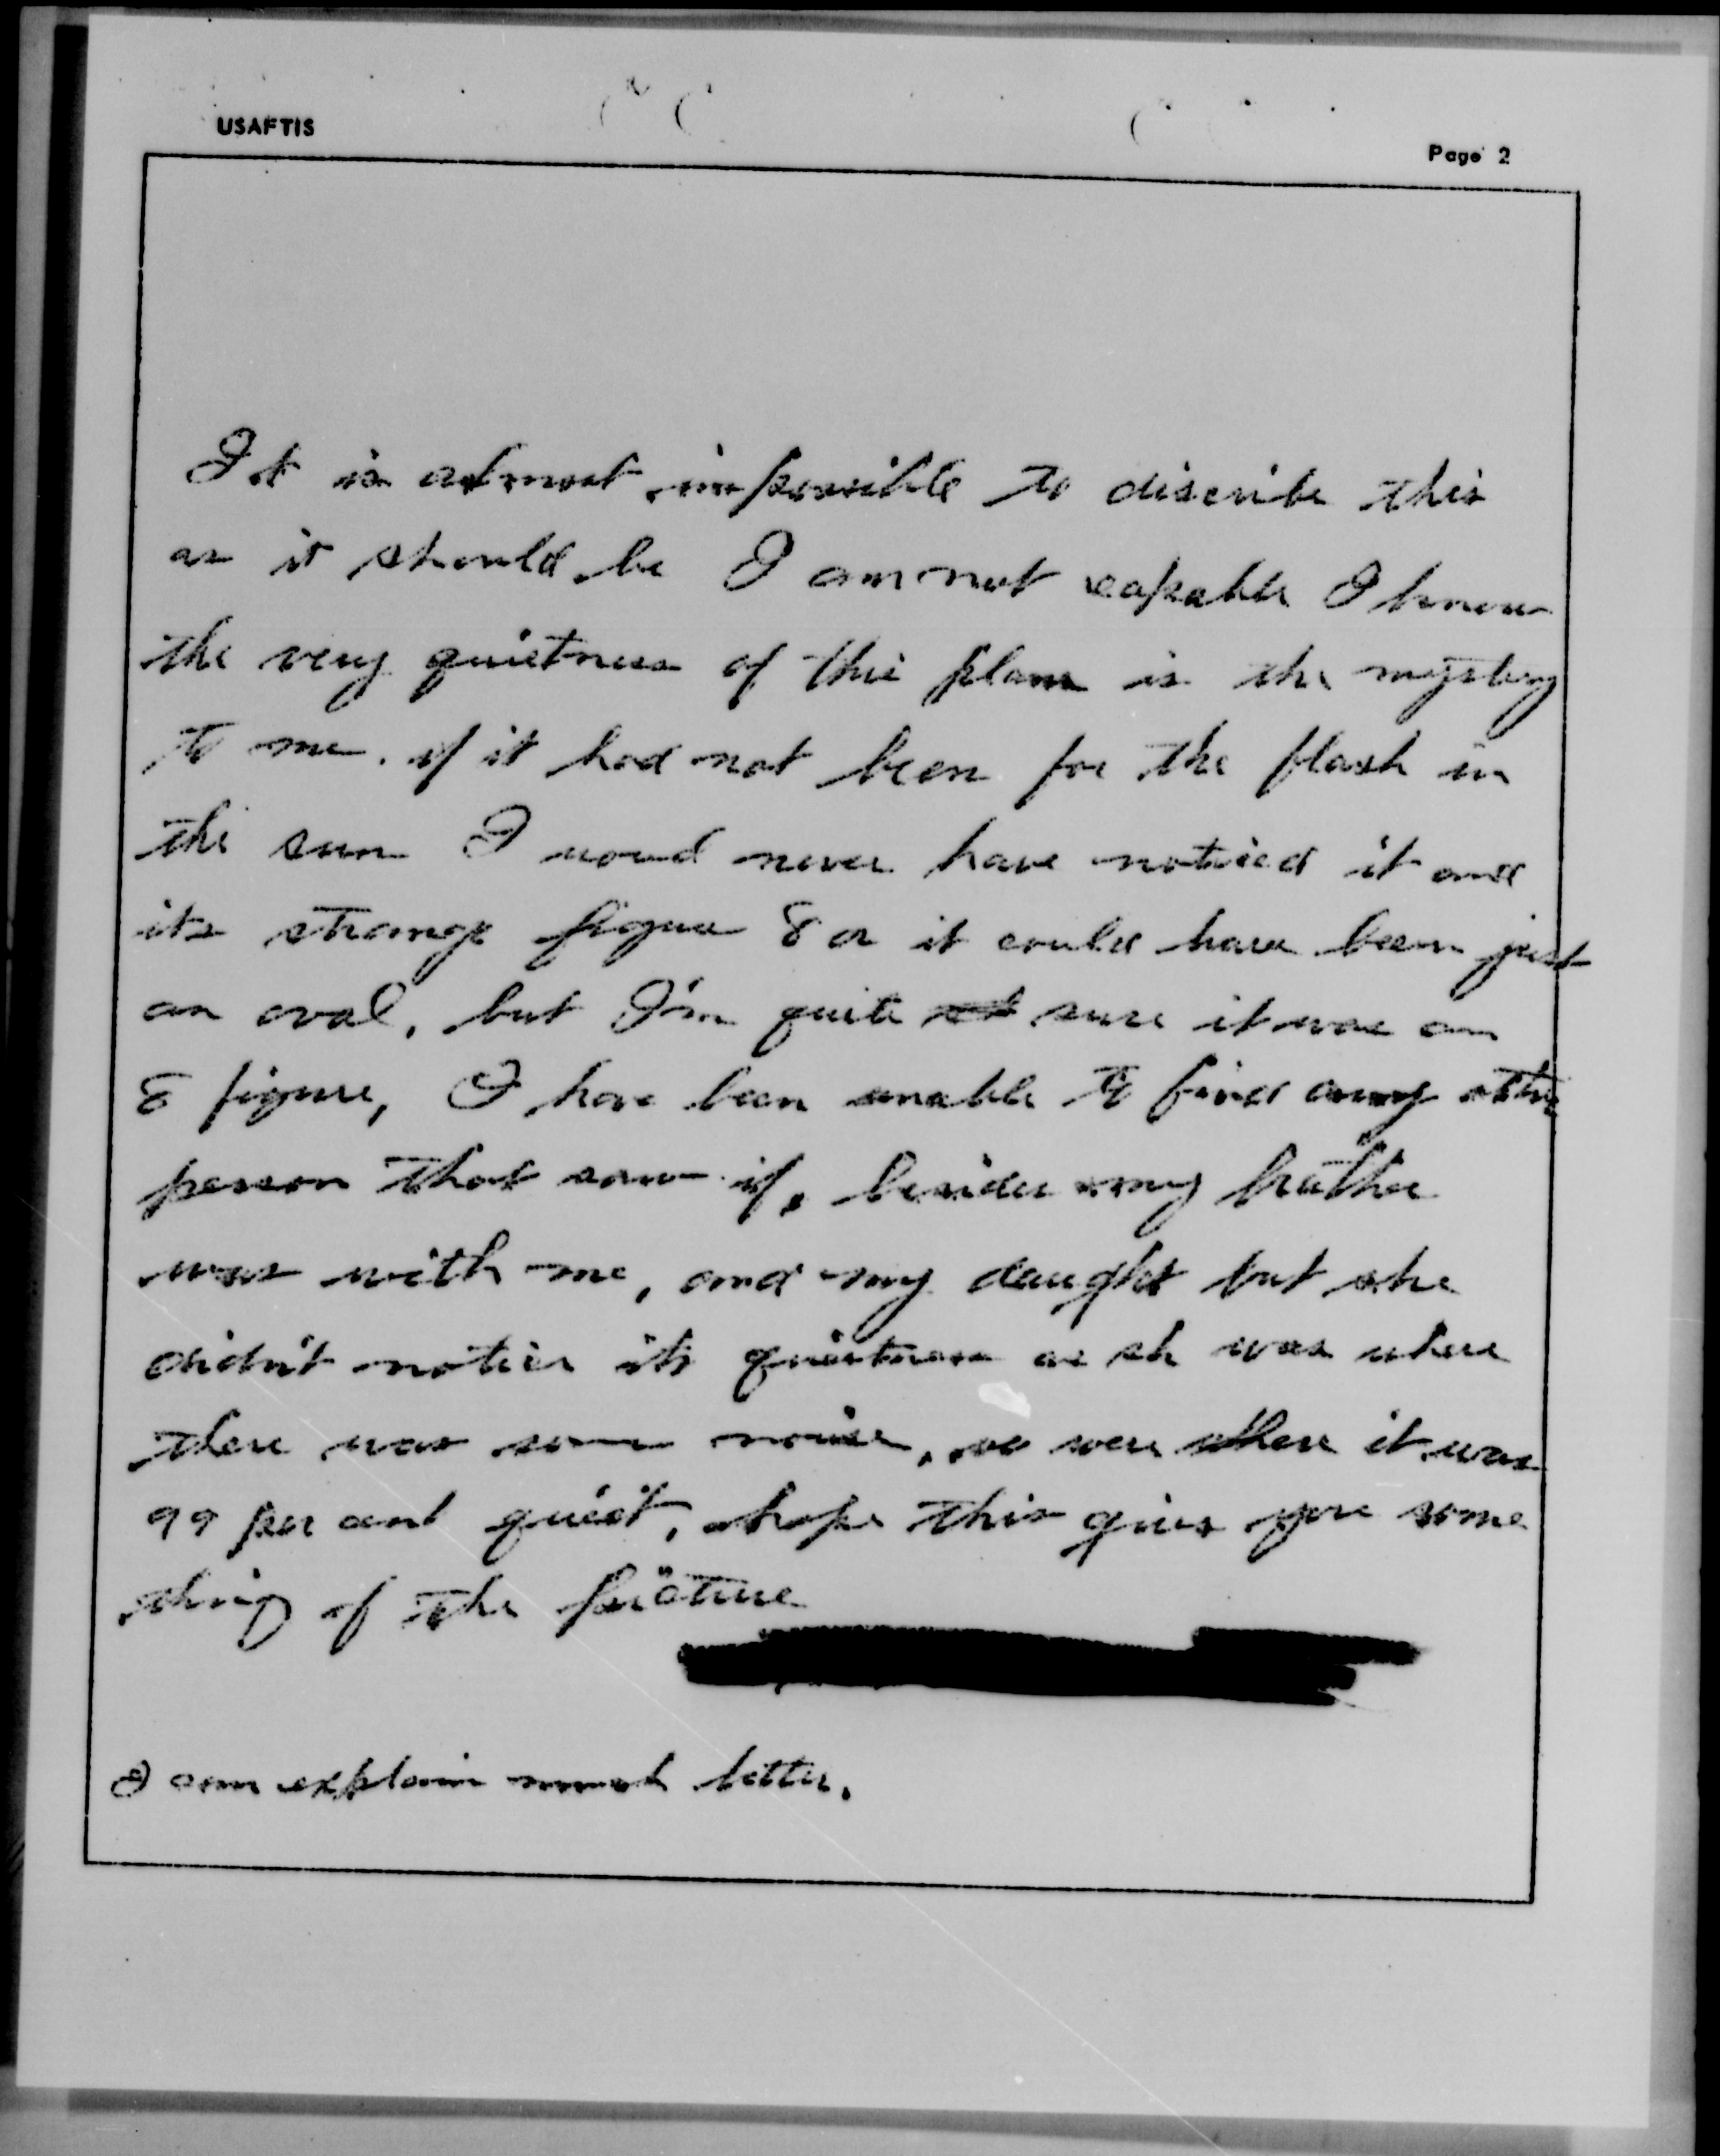 USAFTIS
Page 2
It is almost impossible to discribe this
as it should be I am not capable I know
the very quietness of this plane is the mystery
to me. if it had not been for the flash in
the sun I woud never have noticed it and
its strange figure 8 or it could have been just
an oval, but I'm quite sure it was an
8 figure, I have been unable to find any other
person that saw it, besides my brother
was with me, and my daught but she
didn't notice its quietness as sh was where
there was some noise, we were where it was
99 per cent quiet, hope this gives you some
thing of the picture
I can explain much better.